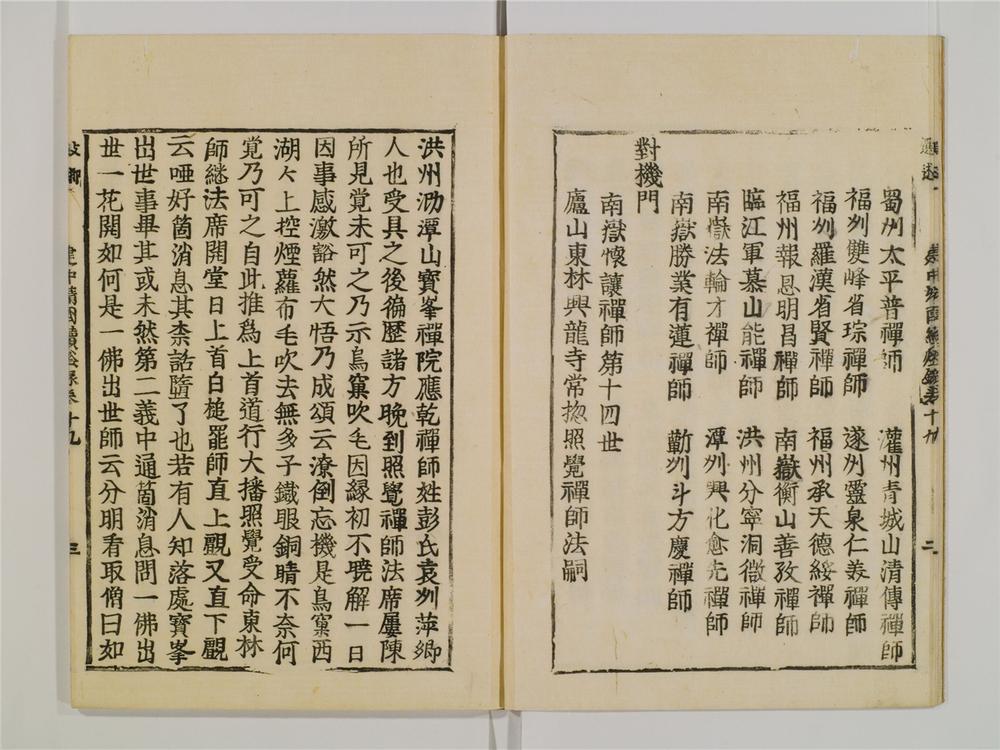 蜀州太平普禪師 灌州青城山清傳禪師
福州雙峰省琮禪師 遂州靈泉仁美禪師
福州羅漢省賢禪師 福州承天德綏禪師
福州報恩明昌禪師 南嶽衡山善孜禪師
臨江軍慕山能禪師 洪州分寧洞微禪師
南嶽法輪才禪師 潭州興化愈先禪師
南嶽勝業有蓮禪師 蘄州斗方慶禪師
對機門
南嶽懷讓禪師第十四世
廬山東林興龍寺常揔照覺禪師法嗣
洪州泐潭山寶峯禪院應乾禪師姓彭氏袁州萍鄉
人也受具之後徧歷諸方晚到照覺禪師法席屢陳
所見覺未可之乃示鳥窠吹毛因緣初不曉解一日
因事感激豁然大悟乃成頌云潦倒忘機是鳥窠西
湖湖上控煙蘿布毛吹去無多子鐵眼銅睛不奈何
覺乃可之自此推爲上首道行大播照覺受命東林
師継法席開堂日上首白槌罷師直上觀又直下觀
云啞好箇消息其柰誥墮了也若有人知落處寶峯
出世事畢其或未然第二義中通箇消息問一佛出
世一花開如何是一佛出世師云分明看取僧曰如
建中靖國續燈録卷十九
三
二